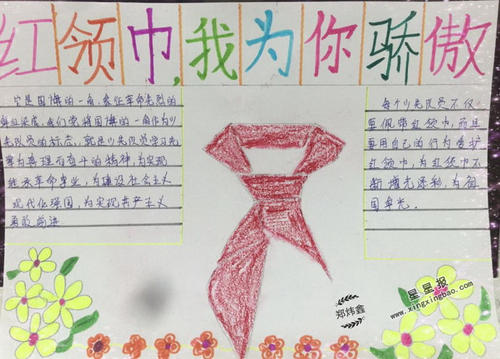 红领巾,我为你骄傲
它是国旗的一角,象征革命先烈的
我们常将国旗的一角作为少
先队员的标志,就是少先队员学习先
辈为真理而奋斗的精神,为实现
继承革命事业,为建设社会主义
现代化强国,为实现共产主义
勇敢前进
每个少先队员不仅
要佩带红领巾,而且
要用自己的行为爱护
红领巾,为红领巾不
断增光添彩,为祖
国争光。
郑炜鑫
星星报
www.xingxingbao.com